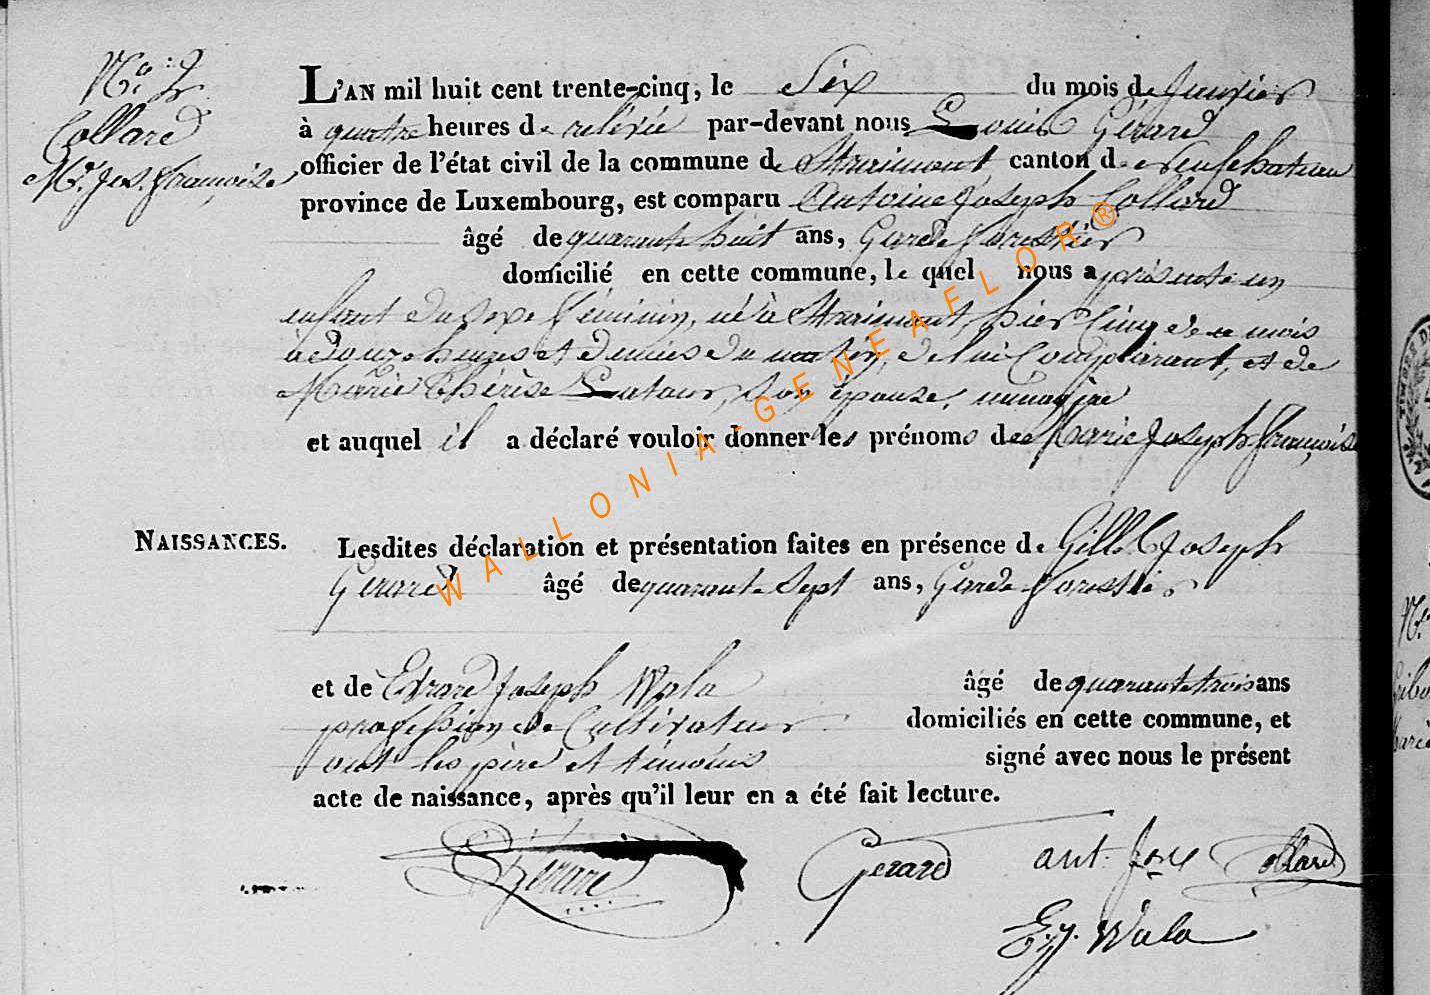 N.o 2
Collard
M.ie Jos. Françoise
L'AN mil huit cent trente-cinq, le Six du mois de Janvier
à quatre heures de relevée par-devant nous Louis Gérard
officier de l'état civil de la commune de Straimont, canton de Neufchateau
province de Luxembourg, est comparu Antoine Joseph Collard
âgé de quarante huit ans, Garde forestier
domicilié en cette commune, le quel nous a présenté un
enfant du sexe féminin, né à Straimont, hier cinq de ce mois
à douze heures et demies du matin, de lui Comparant, et de
Marie Thérèse Latour, son épouse, menagère
et auquel il a déclaré vouloir donner les prénoms de Marie Joseph Françoise
NAISSANCES.
Lesdites déclaration et présentation faites en présence de Gille Joseph
Gerard âgé de quarante sept ans, Garde forestier
et de Evrard Joseph Wala âgé de quarante trois ans
profession de Cultivateur domiciliés en cette commune, et
ont les père et témoins signé avec nous le présent
acte de naissance, après qu'il leur en a été fait lecture.
Gérard Gerard ant. Jose Collard
E. J. Wala
WALLONIA-GENEAFLOR®